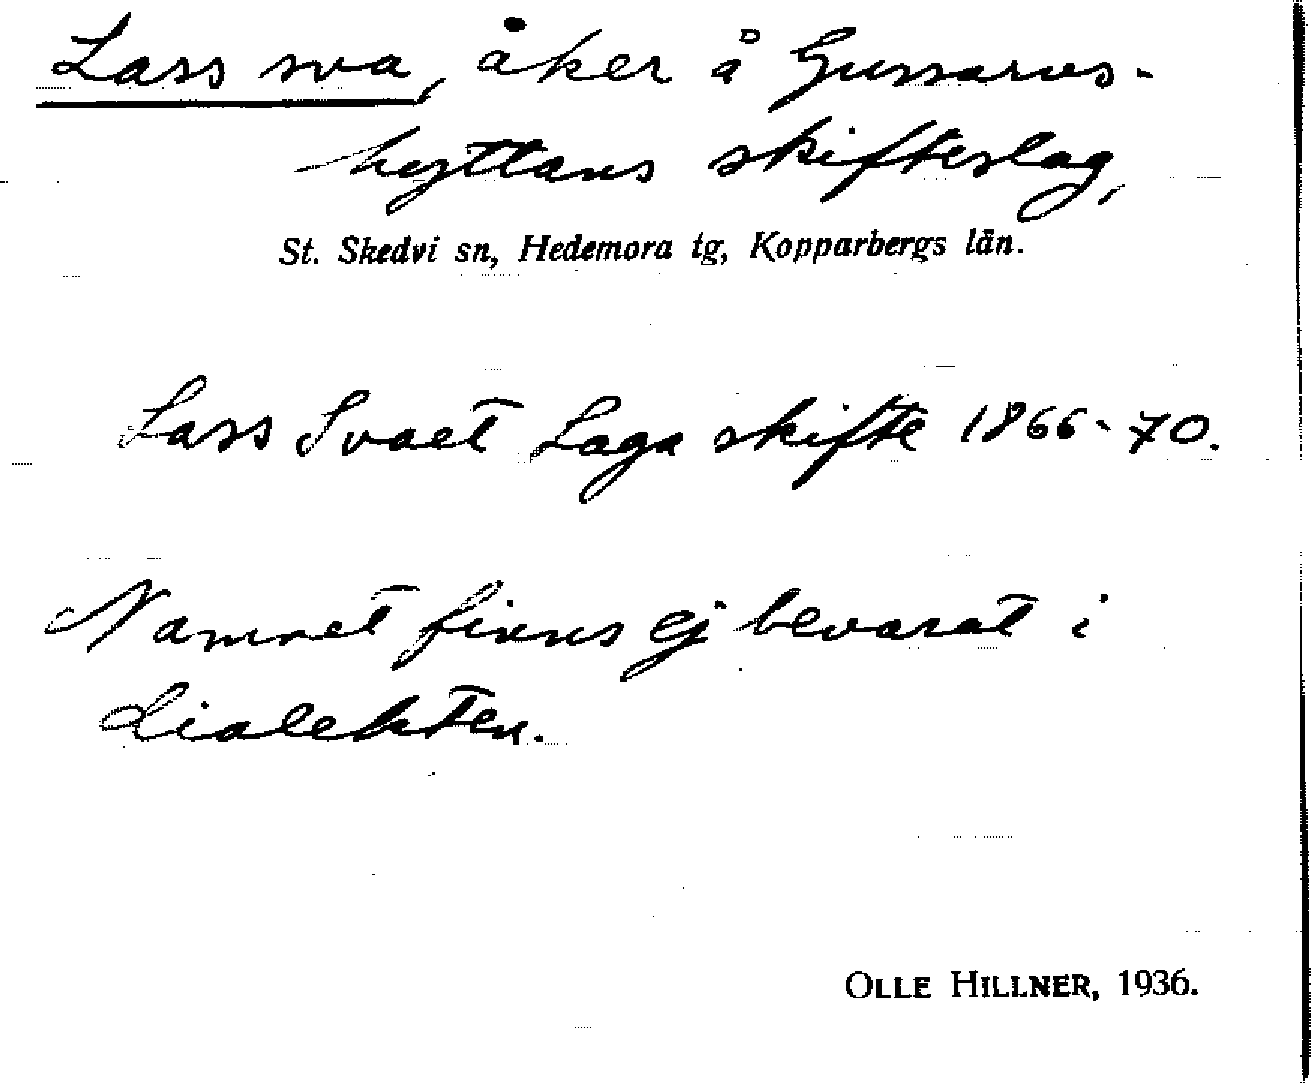 Lass sva, åker å Gussarvs-
hyttans skifteslag,
St. Skedvi sn, Hedemora tg, Kopparbergs län.
Lass Svaet Laga skifte 1866-70.
Namnet finns ej bevarat i
dialekten.
OLLE HILLNER, 1936.